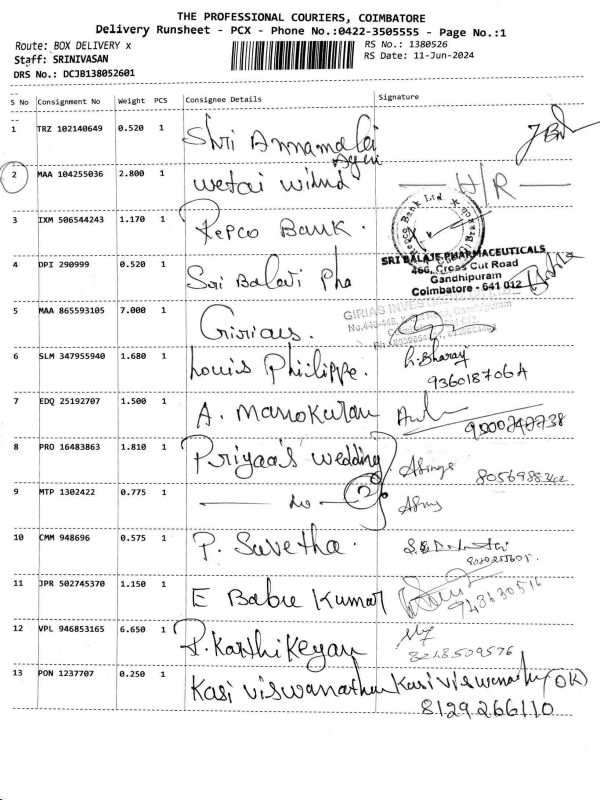 THE PROFESSIONAL COURIERS, COIMBATORE
Delivery Runsheet - PCX - Phone No.:0422-3505555 - Page No.:1
Route: BOX DELIVERY x
RS No.: 1380526
Staff: SRINIVASAN
RS Date: 11-Jun-2024
DRS No.: DCJB138052601
S No Consignment No Weight PCS Consignee Details Signature
1 TRZ 102140649 0.520 1 Shri Annamalai
2 MAA 104255036 2.800 1 H/R
3 IXM 506544243 1.170 1 Repco Bank.
Repco Bank Ltd.
4 DPI 290999 0.520 1 Sri Balaji Pha
SRI BALAJE PHARMACEUTICALS
466, Cross Cut Road
Gandhipuram
Coimbatore - 641 012
5 MAA 865593105 7.000 1 Girias.
GIRIAS
6 SLM 347955940 1.680 1 Louis Philippe. R. Bharay
936018706A
7 EDQ 25192707 1.500 1 A. Manokaran
8 PRO 16483863 1.810 1 Priyaa's Wedding
9 MTP 1302422 0.775 1 2
10 CMM 948696 0.575 1 P. Suvetha.
11 JPR 502745370 1.150 1 E Babu Kumar
12 VPL 946853165 6.650 1 P. Karthikeyan
8218509576
13 PON 1237707 0.250 1 Kasi Viswanathan Kasi Viswanathan (OK)
8129266110